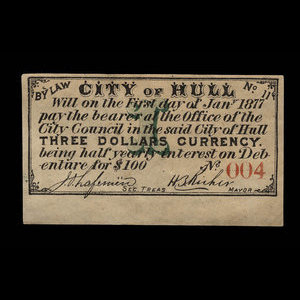 CITY OF HULL
BY LAW No 11
Will on the First day of Jany 1877
pay the bearer at the Office of the
City Council in the said City of Hull
THREE DOLLARS CURRENCY.
being half yearly interest on Deb-
enture for $100 No 004
SEC TREAS MAYOR